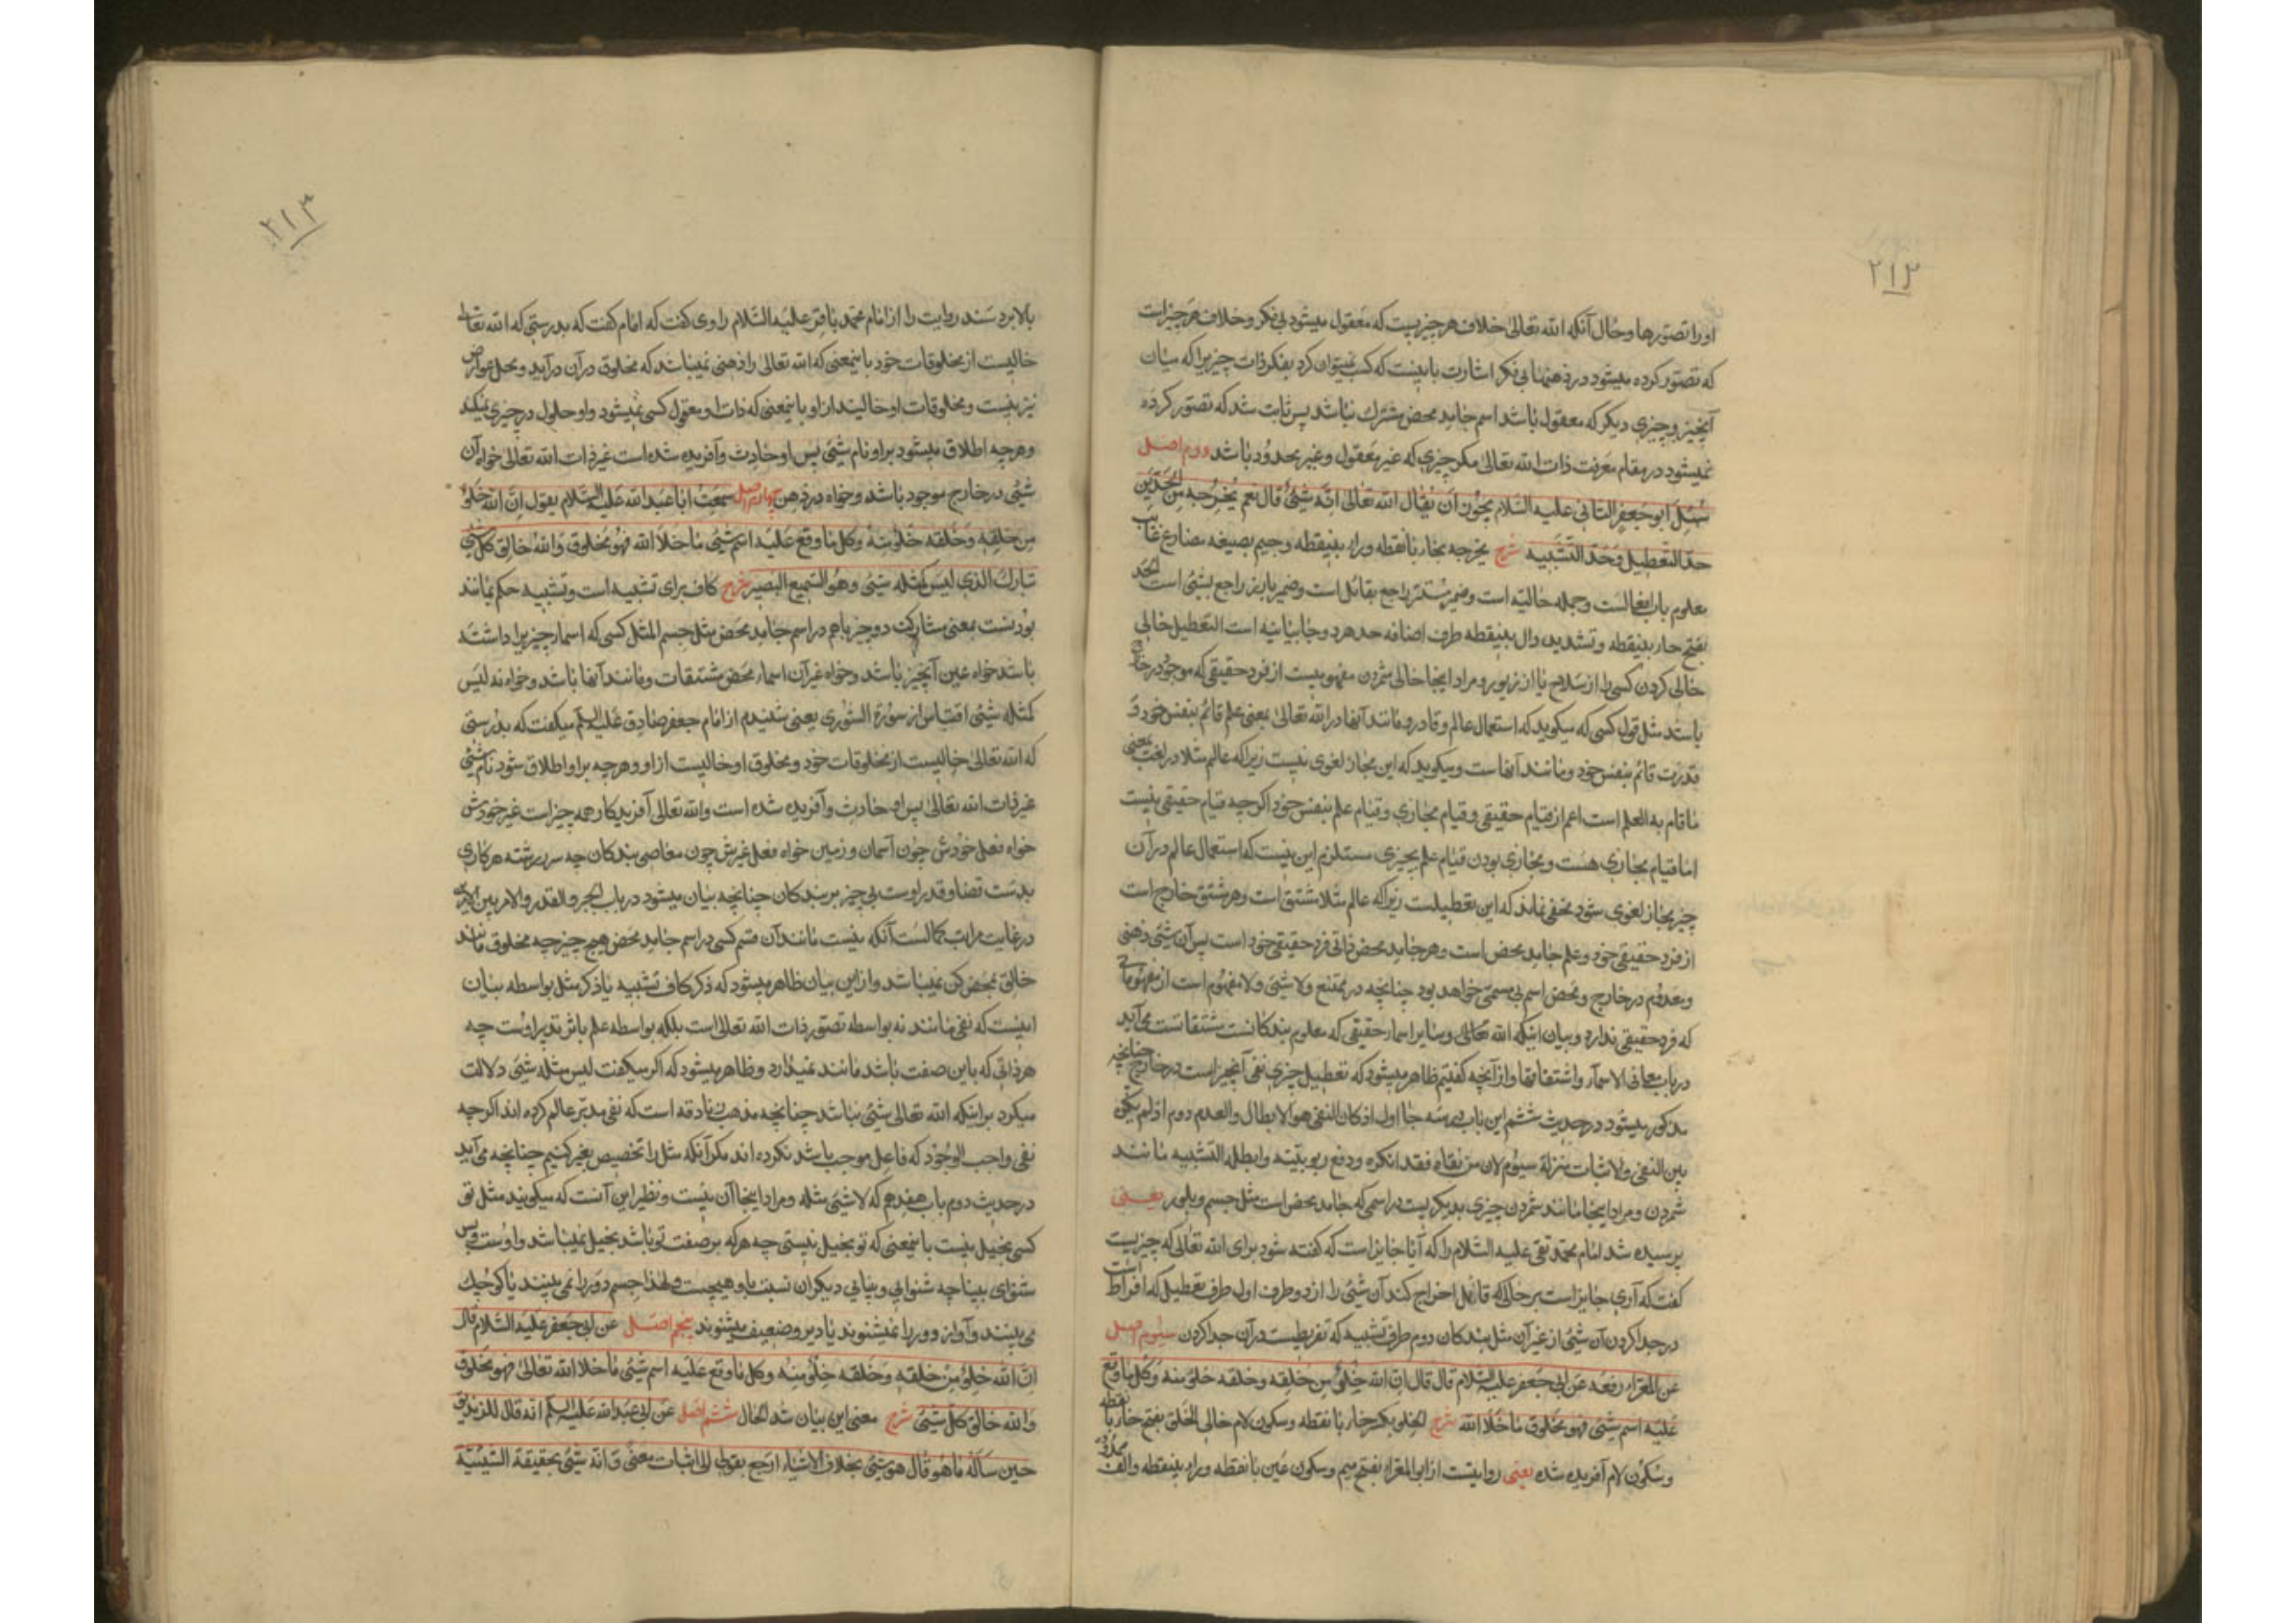 ۲۱۲
او را تصورها و حال آنکه الله تعالی خلاف هر چیزیست که معقول میشود بی فکر و خلاف هر چیزیست
که تصور کرده میشود در ذهنها بی فکر اشارت باینست که کسب نمیتوان کرد بفکر ذات چیزیرا که میان
آنچیز و چیزی دیگر که معقول باشد اسم جامد محض مشترک نباشد پس ثابت شد که تصور کرده
نمیشود در مقام معرفت ذات الله تعالی مگر چیزی که غیر معقول و غیر محدود باشد دوم اصل
سئل ابو جعفر الثانی علیه السلام یجوز ان یقال الله تعالی انه شئ قال نعم یخرجه من الحدین
حد التعطیل و حد التشبیه شرح یخرجه بخاء بانقطه و راء بینقطه و جیم بصیغه مضارع غایب
معلوم باب افعالست و جمله حالیه است و ضمیر مستتر راجع بقائل است و ضمیر بارز راجع بشئ است الحد
بفتح حاء بینقطه و تشدید دال بینقطه طرف اضافه حد هر دو جا بیانیه است التعطیل خالی
خالی کردن کسی را از سلاح یا از زیور و مراد اینجا خالی شمردن مفهومیست از فرد حقیقی که موجود در خارج
باشد مثل قول کسی که میگوید که استعمال عالم و قادر و مانند آنها در الله تعالی بمعنی علم قائم بنفس خود و
قدرت قائم بنفس خود و مانند آنها است و میگوید که این مجاز لغوی نیست زیرا که عالم مثلا در لغت بمعنی
ما قام به العلم است اعم از قیام حقیقی و قیام مجازی و قیام علم بنفس خود اگرچه قیام حقیقی نیست
اما قیام مجازی هست و مجازی بودن قیام علم بچیزی مستلزم این نیست که استعمال عالم در آن
چیز مجاز لغوی شود مخفی نماند که این تعطیلست زیرا که عالم مثلا مشتق است و هر مشتق خارج است
از فرد حقیقی خود و علم جامد محض است و هر جامد محض ذاتی فرد حقیقی خود است پس آن شئ ذهنی
و معدوم در خارج و محض اسم بی مسمی خواهد بود چنانچه در ممتنع و لا شئ و لا مفهوم است از مفهوماتی
که فرد حقیقی ندارد و بیان اینکه الله تعالی و سایر اسماء حقیقی که معلوم بندگانست مشتقاتست می آید
در باب معانی الاسماء و اشتقاقها و از آنچه گفتیم ظاهر میشود که تعطیل چیزی نفی آنچیز است در خارج چنانچه
مذکور میشود در حدیث ششم این باب در سه جا اول اذ کان النفی هو الابطال و العدم دوم اذ لم یکن
بین النفی و الاثبات منزلة سیوم لان من نفاه فقد انکره و دفع ربوبیته و ابطله التشبیه مانند
شمردن و مراد اینجا مانند شمردن چیزی بدیگریست در اسمی که جامد محض است مثل جسم و بلور یعنی
پرسیده شد امام محمد تقی علیه السلام را که آیا جایز است که گفته شود برای الله تعالی که چیزیست
گفت که آری جایز است بر حالی که قائل اخراج کند آن شئ را از دو طرف اول طرف تعطیل که افراط است
در جدا کردن آن شئ از غیر آن مثل بندگان دوم طرف تشبیه که تفریطست در آن جدا کردن سیوم اصل
عن المغراء رفعه عن ابی جعفر علیه السلام قال قال ان الله خلو من خلقه و خلقه خلو منه و کل ما وقع
علیه اسم شئ فهو مخلوق ما خلا الله شرح الخلو بکسر خاء با نقطه و سکون لام خالی الخلق بفتح خاء با نقطه
و سکون لام آفریده شده یعنی روایتست از ابو المغراء بفتح میم و سکون غین با نقطه و راء بینقطه و الف ممدوده
۲۱۳
بالا برد سند روایت را از امام محمد باقر علیه السلام راوی گفت که امام گفت که بدرستی که الله تعالی
خالیست از مخلوقات خود باینمعنی که الله تعالی را ذهنی نمیباشد که مخلوق در آن درآید و محل عوارض
نیز نیست و مخلوقات او خالیند از او باینمعنی که ذات او معقول کسی نمیشود و او حلول در چیزی نمیکند
و هرچه اطلاق میشود بر او نام شئ پس او حادث و آفریده شده است غیر ذات الله تعالی خواه آن
شئ در خارج موجود باشد و خواه در ذهن چهارم اصل سمعت ابا عبد الله علیه السلام یقول ان الله خلو
من خلقه و خلقه خلو منه و کل ما وقع علیه اسم شئ ما خلا الله فهو مخلوق و الله خالق کل شئ
تبارک الذی لیس کمثله شئ و هو السمیع البصیر شرح کاف برای تشبیه است و تشبیه حکم بمانند
بودنست بمعنی مشارکت دو چیز با هم در اسم جامد محض مثل جسم المثل کسی که اسماء چیزیرا داشته
باشد خواه عین آنچیز باشد و خواه غیر آن اسماء محض مشتقات و مانند آنها باشد و خواه نه لیس
کمثله شئ اقتباس از سورة الشوری یعنی شنیدم از امام جعفر صادق علیه السلم میگفت که بدرستی
که الله تعالی خالیست از مخلوقات خود و مخلوق او خالیست از او و هرچه بر او اطلاق شود نام شئ
غیر ذات الله تعالی پس او حادث و آفریده شده است و الله تعالی آفریدگار همه چیز است غیر خودش
خواه فعل خودش چون آسمان و زمین خواه فعل غیرش چون معاصی بندگان چه سررشته هر کاری
بدست قضا و قدر اوست بی چیز بر بندگان چنانچه بیان میشود در باب الجبر و القدر و الامر بین الامرین
در غایت مراتب کمالست آنکه نیست مانند آن قسم کسی در اسم جامد محض هیچ چیز چه مخلوق مانند
خالق بمحض کن نمیباشد و از این بیان ظاهر میشود که ذکر کاف تشبیه با ذکر مثل بواسطه بیان
اینست که نفی مانند نه بواسطه تصور ذات الله تعالی است بلکه بواسطه علم باثر تدبیر اوست چه
هر ذاتی که باین صفت باشد مانند نمیدارد و ظاهر میشود که اگر میگفت لیس مثله شئ دلالت
میکرد بر اینکه الله تعالی شئ نباشد چنانچه مذهب زنادقه است که نفی مدبر عالم کرده اند اگرچه
نفی واجب الوجود که فاعل موجب باشد نکرده اند مگر آنکه مثل را تخصیص بغیر کنیم چنانچه می آید
در حدیث دوم باب هفدهم که لا شئ مثله و مراد اینجا آن نیست و نظیر این آنست که میگویند مثل تو
کسی بخیل نیست باینمعنی که تو بخیل نیستی چه هر که بر صفت تو باشد بخیل نمیباشد و اوست و بس
شنوای بینا چه شنوایی و بینایی دیگران نسبت باو هیچست و لهذا جسم دور را نمی بینند یا کوچک
می بینند و آواز دور را نمیشنوند یا دیر و ضعیف میشنوند پنجم اصل عن ابی جعفر علیه السلام قال
ان الله خلو من خلقه و خلقه خلو منه و کل ما وقع علیه اسم شئ ما خلا الله تعالی فهو مخلوق
و الله خالق کل شئ شرح معنی این بیان شد الحال ششم اصل عن ابی عبد الله علیه السلم انه قال للزندیق
حین سأله ما هو قال هو شئ بخلاف الاشیاء ارجع بقولی الی اثبات معنی و انه شئ بحقیقة الشیئیة